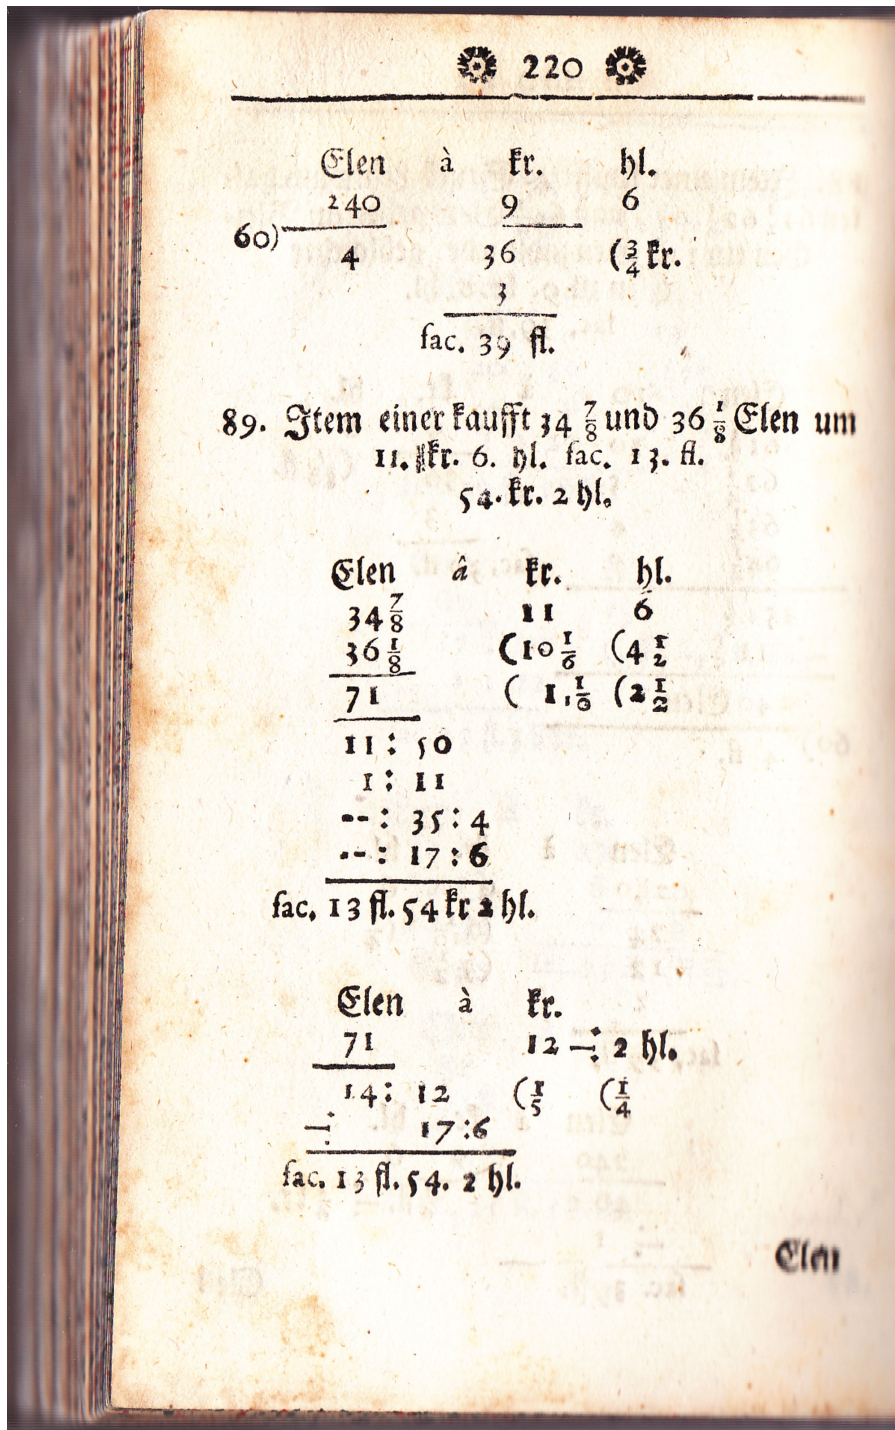 220
Elen à kr. hl.
240 9 6
60) 4 36 (3/4 kr.
3
fac. 39 fl.
89. Item einer kaufft 34 7/8 und 36 1/8 Elen um
11. kr. 6. hl. fac. 13. fl.
54. kr. 2 hl.
Elen â kr. hl.
34 7/8 11 6
36 1/8 (10 1/6 (4 1/2
71 ( 1. 1/0 (2 1/2
11 : 50
1 : 11
-- : 35 : 4
-- : 17 : 6
fac. 13 fl. 54 kr 2 hl.
Elen à kr.
71 12 ÷ 2 hl.
14 : 12 (1/5 (1/4
÷ 17 : 6
fac. 13 fl. 54. 2 hl.
Elen